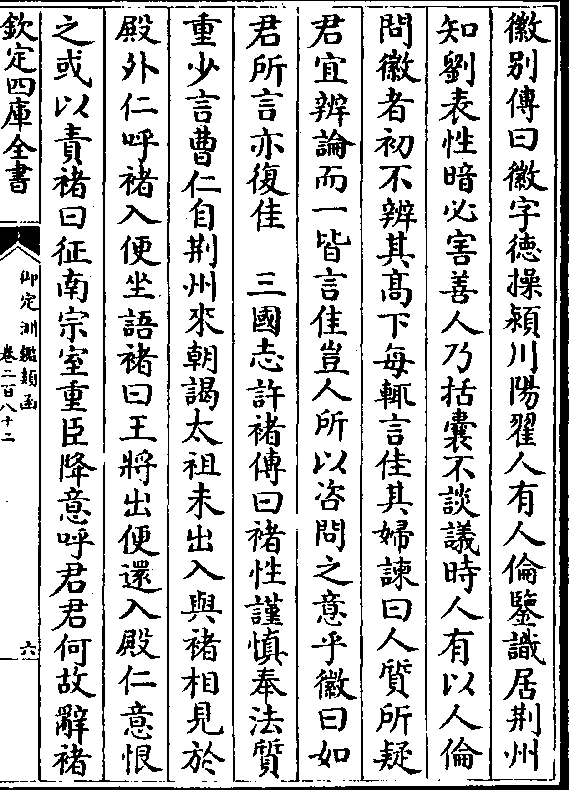 徽别傳曰徽字徳操潁川陽翟人有人倫鑒識居荆州
知劉表性暗必害善人乃括囊不談議時人有以人倫
問徽者初不辨其髙下每輒言佳其婦諫曰人質所疑
君宜辨論而一皆言佳豈人所以咨問之意乎徽曰如
君所言亦復佳　三國志許褚傳曰褚性謹慎奉法質
重少言曹仁自荆州來朝謁太祖未出入與褚相見於
殿外仁呼褚入便坐語褚曰王將出便還入殿仁意恨
之或以責褚曰征南宗室重臣降意呼君君何故辭褚
欽定四庫全書
御定淵鑑類函
卷二百八十二
六